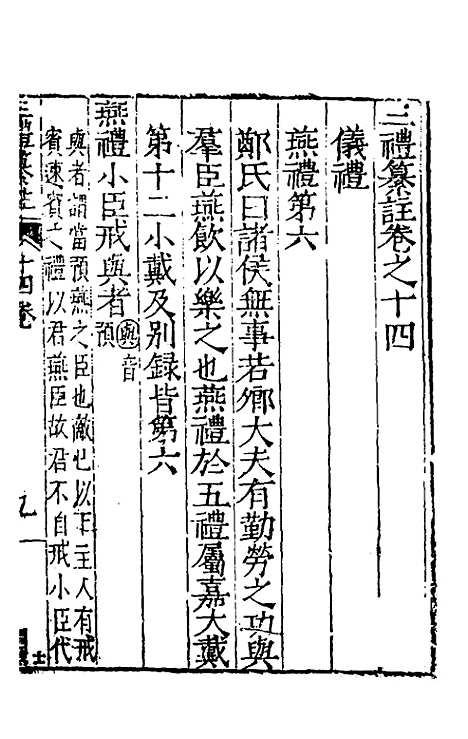 三禮纂註卷之十四
儀禮
燕禮第六
鄭氏曰諸侯無事若鄉大夫有勤勞之功與
羣臣燕飲以樂之也燕禮於五禮屬嘉大戴
第十二小戴及别録皆第六
燕禮小臣戒與者 與音預
與者謂當預燕之臣也敵也以下主人有戒
賓速賓之禮以君燕臣故君不自戒小臣代
十四卷